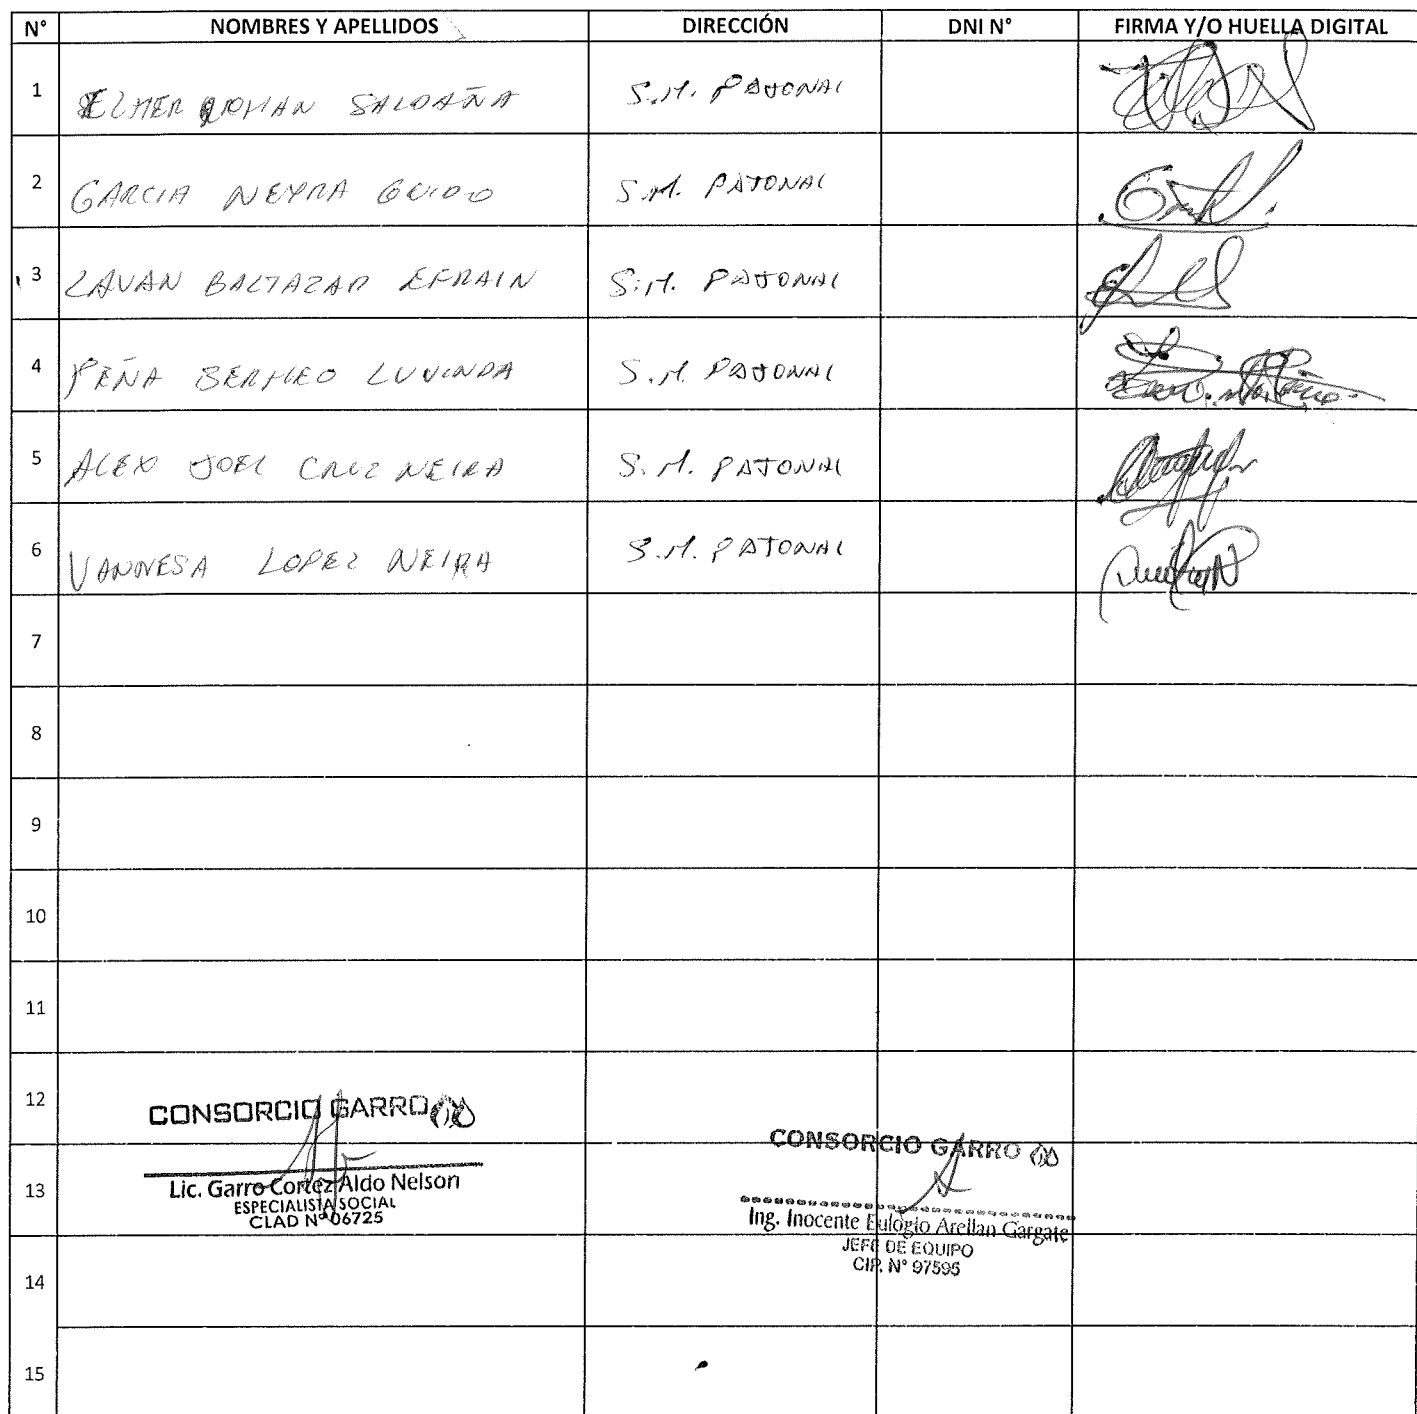 N° NOMBRES Y APELLIDOS DIRECCIÓN DNI N° FIRMA Y/O HUELLA DIGITAL
1 ELMER ROMAN SALDAÑA S.M. PAJONAL
2 GARCIA NEYRA GUIDO S.M. PAJONAL
3 LAVAN BALTAZAR EFRAIN S.M. PAJONAL
4 PEÑA BERMEO LUVINDA S.M. PAJONAL
5 ALEX JOEL CRUZ NEIRA S.M. PAJONAL
6 VANNESA LOPEZ NEIRA S.M. PAJONAL
7
8
9
10
11
12
CONSORCIO GARRO
13
Lic. Garro Cortez Aldo Nelson
ESPECIALISTA SOCIAL
CLAD N° 06725
CONSORCIO GARRO
Ing. Inocente Eulogio Arellan Gargate
JEFE DE EQUIPO
CIP. N° 97595
14
15